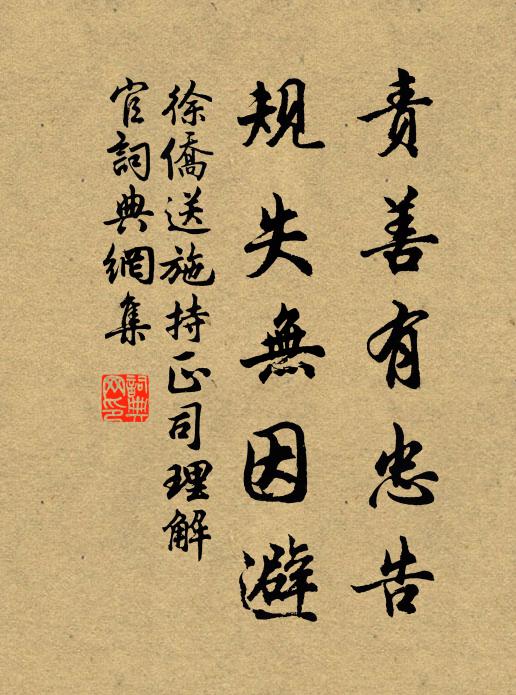 責善有忠告
規失無因避
徐僑送施持正司理解
官詞典網集
詞典
网印